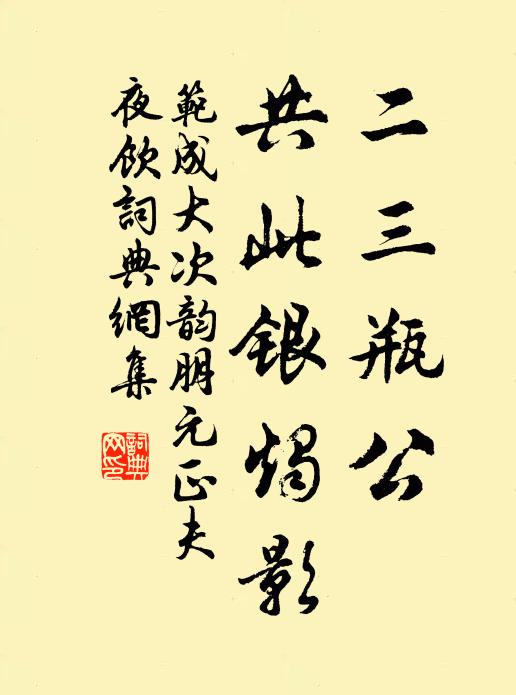 二三瓶公
共此銀燭影
範成大次韵朋元正夫
夜飲詞典網集
詞典
网印